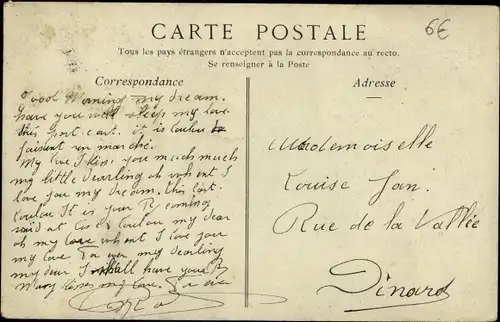 6€
CARTE POSTALE
Tous les pays étrangers n'acceptent pas la correspondance au recto.
Se renseigner à la Poste
Correspondance
Good Morning my dream.
have you well sleep my love.
this post cart. it is Loulou
faisant
My love I kiss you much much
my little Dearling oh I
love you my dream. this
Loulou It is your R coming
said at & Loulou my dear
oh my love I love you
my love you my dearling
my dear I shall have your
Many kisses my love. ever
Adresse
Mademoiselle
Louise Jan.
Rue de la Vallée
Dinard